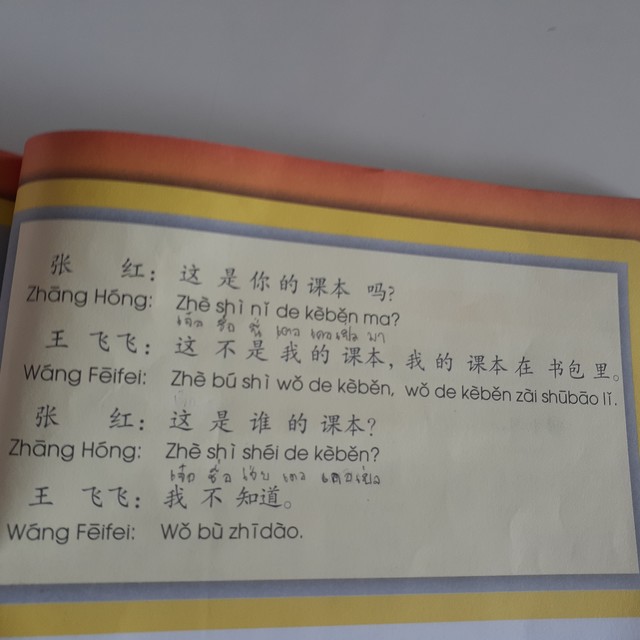 张 红：这 是 你 的 课本 吗？
Zhāng Hóng: Zhè shì nǐ de kèběn ma?
王 飞飞：这 不 是 我 的 课本，我 的 课本 在 书包 里。
Wáng Fēifei: Zhè bú shì wǒ de kèběn, wǒ de kèběn zài shūbāo lǐ.
张 红：这 是 谁 的 课本？
Zhāng Hóng: Zhè shì shéi de kèběn?
王 飞飞：我 不 知道。
Wáng Fēifei: Wǒ bù zhīdào.